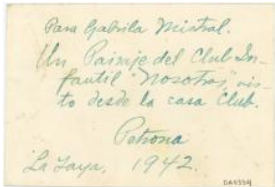 Para Gabriela Mistral.
Un Paisaje del Club In-
fantil "Nosotras", vis-
to desde la casa Club.
Petrona
La Jaya, 1942.